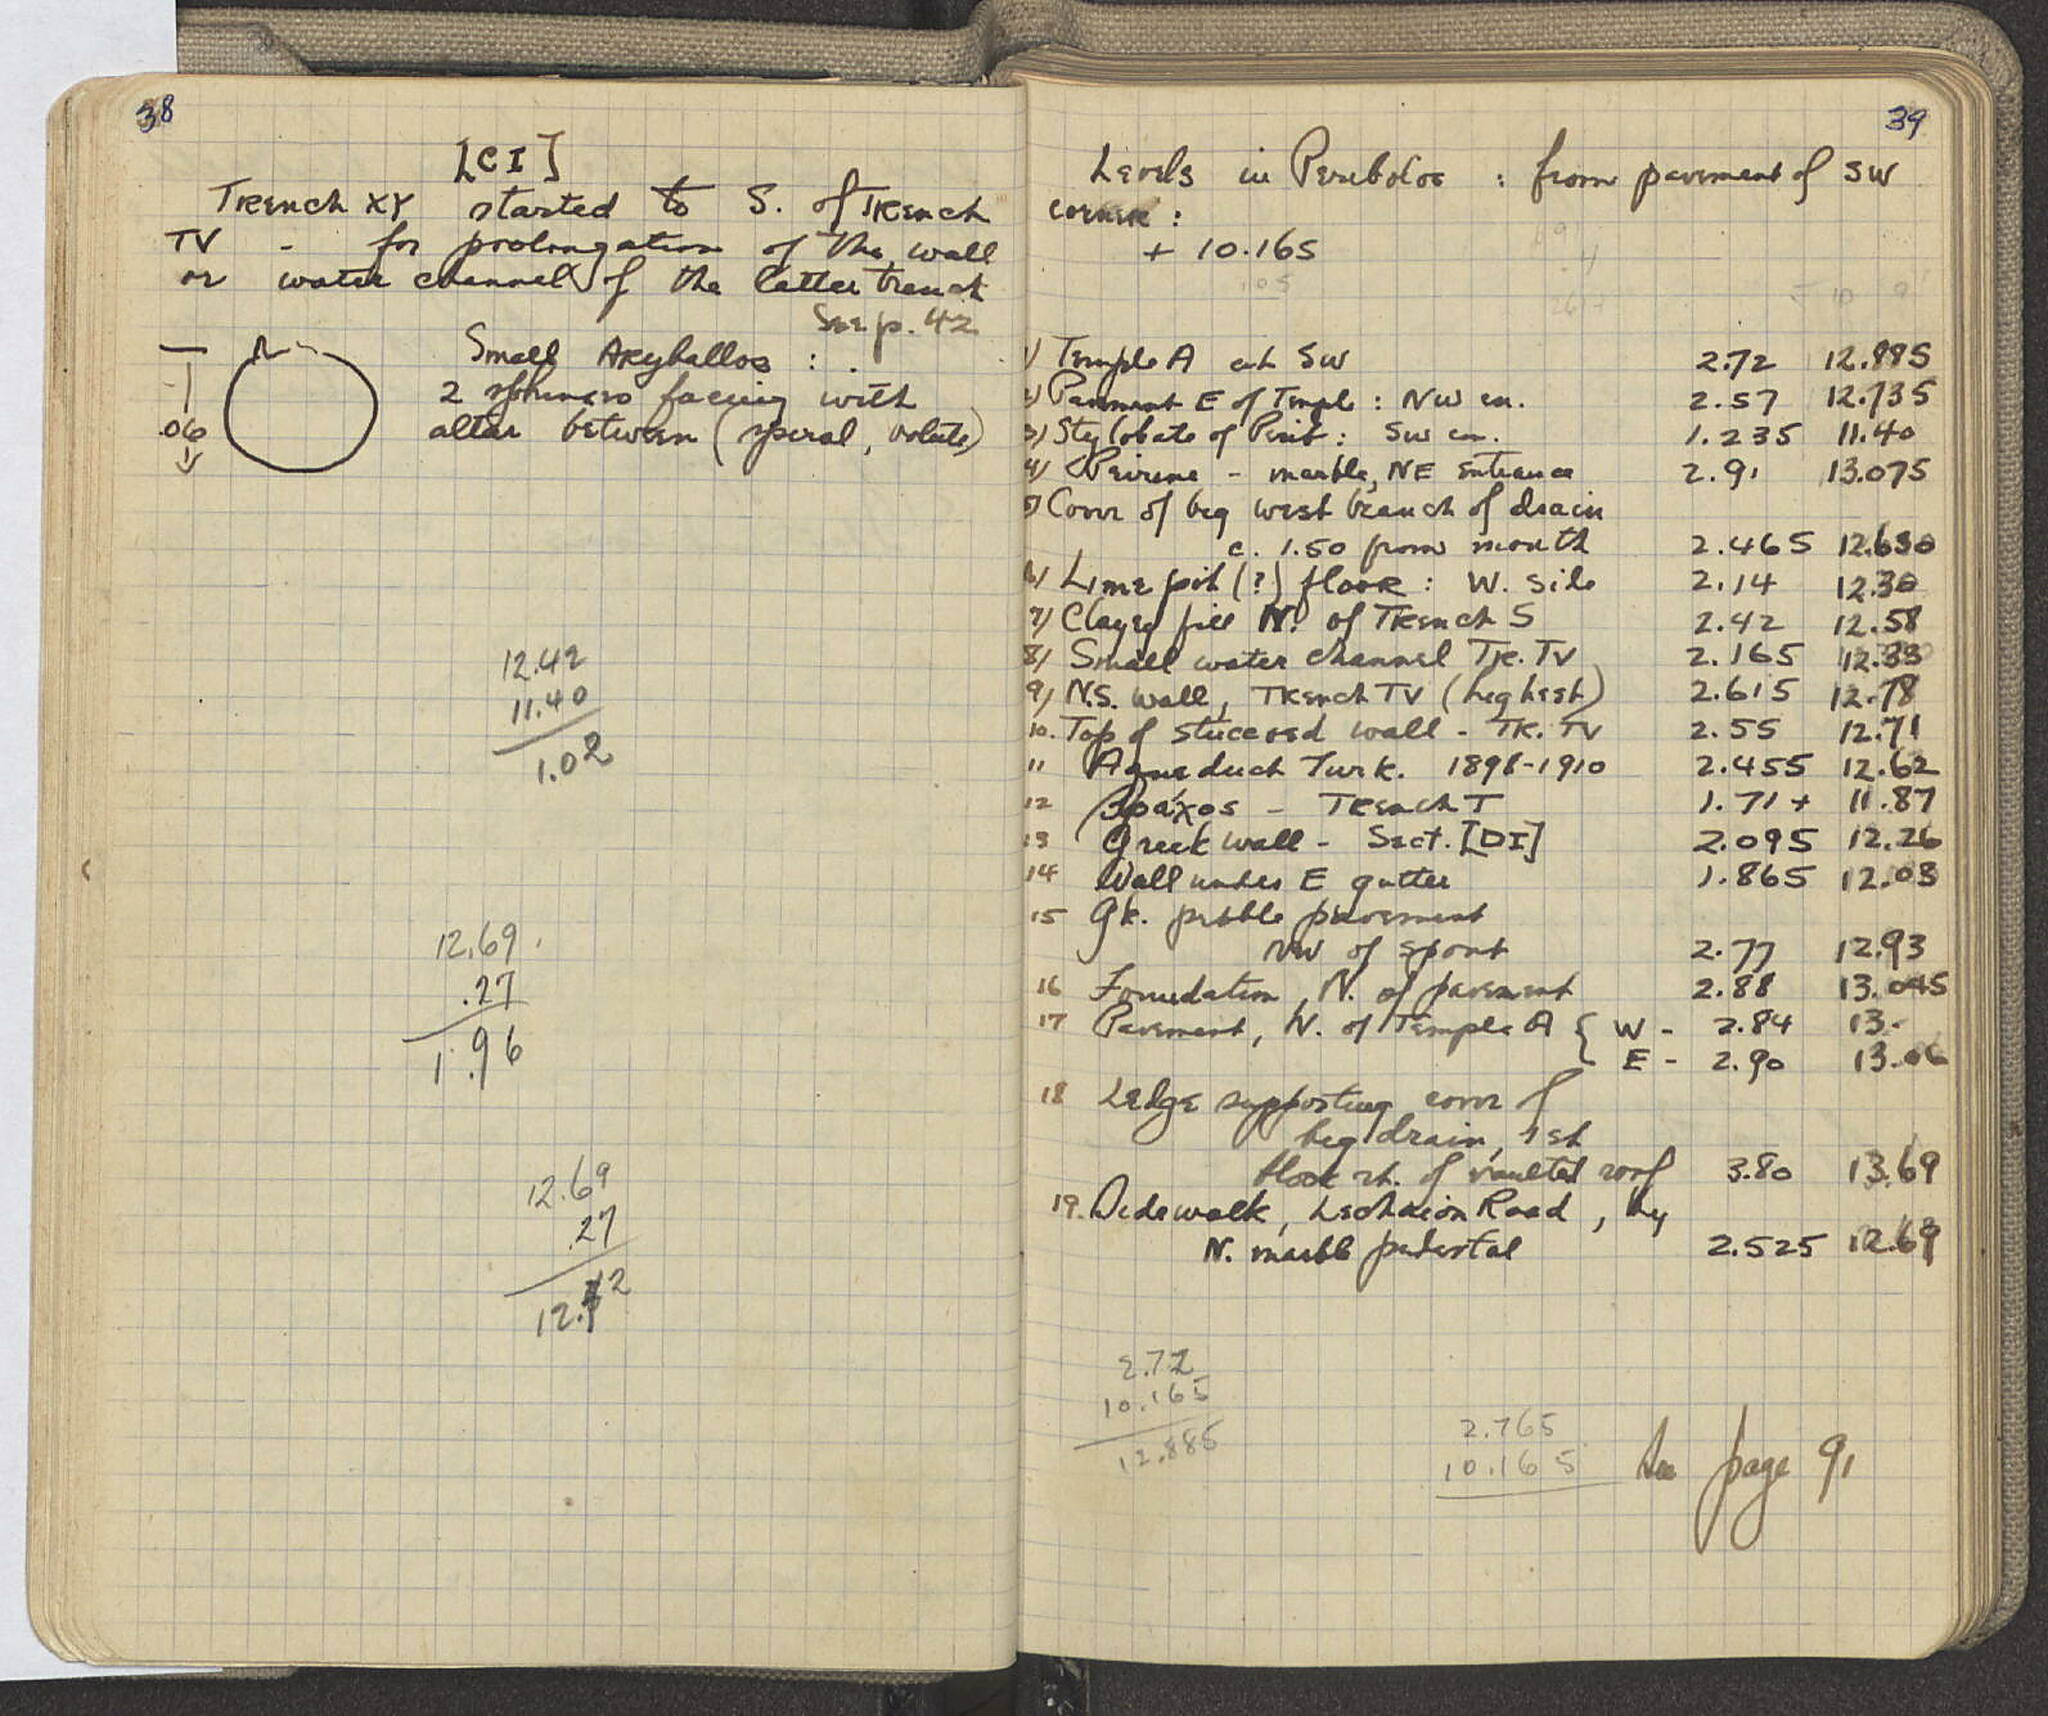 38
[CI]
Trench XY started to S. of Trench
TV - for prolongation of the wall
or water channel of the latter trench
See p. 42
Small Aryballos :
2 sphinxes facing with
altar between (spiral, volute)
.06
12.42
11.40
1.02
12.69
.27
1.96
12.69
.27
12.42
39
Levels in Peribolos : from pavement of SW
corner :
+ 10.165
1) Temple A at SW 2.72 12.885
2) Pavement E of Temple : NW cn. 2.57 12.735
3) Stylobate of Perib : SW cn. 1.235 11.40
4) Peirene - marble, NE entrance 2.91 13.075
5) Cover of big west branch of drain
c. 1.50 from mouth 2.465 12.630
6) Lime pit (?) floor : W. side 2.14 12.30
7) Clayey fill N. of Trench S 2.42 12.58
8) Small water channel Tr. TV 2.165 12.33
9) N.S. wall, Trench TV (highest) 2.615 12.78
10. Top of stuccoed wall - Tr. TV 2.55 12.71
11 Aqueduct Turk. 1898-1910 2.455 12.62
12 Βράχος - Trench T 1.71+ 11.87
13 Greek wall - Sect. [DI] 2.095 12.26
14 Wall under E gutter 1.865 12.03
15 Gk. pebble pavement
NW of spout 2.77 12.93
16 Foundation, N. of pavement 2.88 13.045
17 Pavement, N. of Temple A { W - 2.84 13.-
E - 2.90 13.06
18 Ledge supporting cover of
big drain, 1st
block rt. of vaulted roof 3.80 13.69
19. Sidewalk, Lechaion Road, by
N. marble pedestal 2.525 12.69
2.72
10.165
12.885
2.765
10.165
See page 91